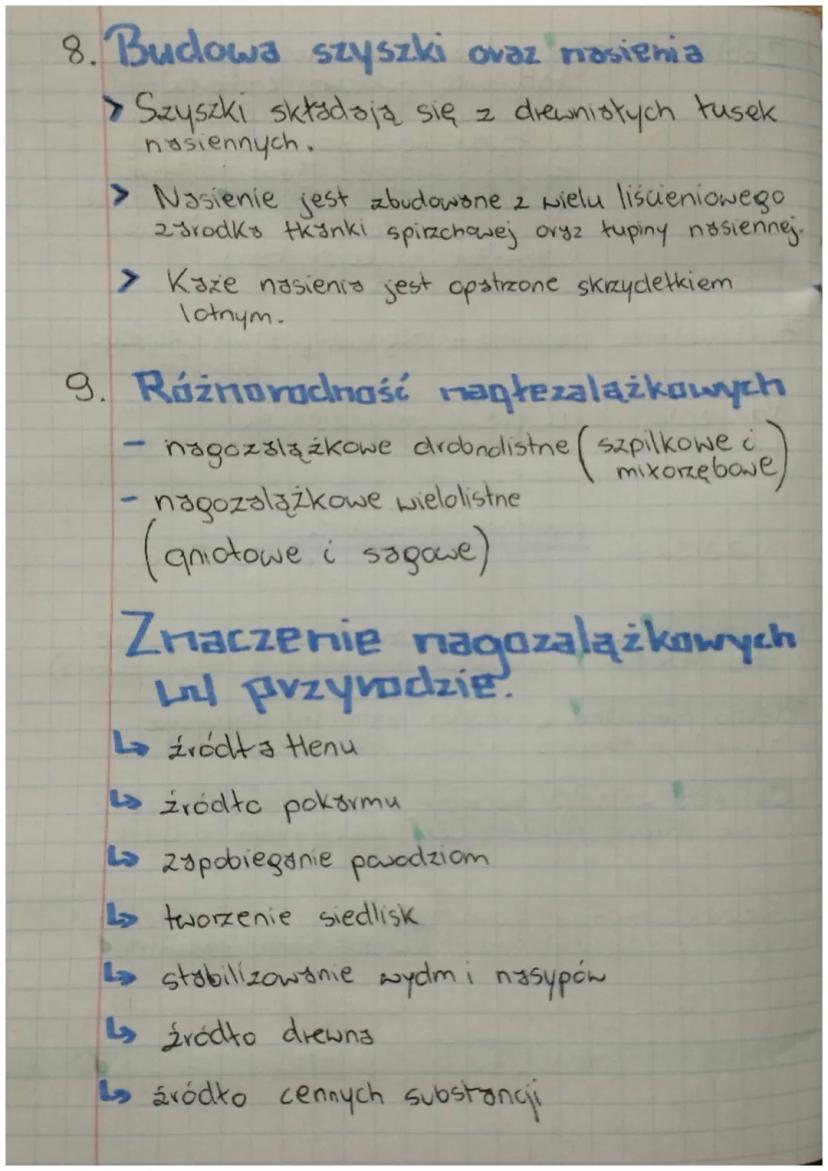 8. Budowa szyszki oraz nasienia
> Szyszki składają się z drewniałych łusek
nasiennych.
> Nasienie jest zbudowane z wielu liścieniowego
zarodka tkanki spirzchowej oraz łupiny nasiennej.
> Kaze nasienia jest opatrzone skrzydełkiem
lotnym.
9. Różnorodność nagłezalążkowych
- nagozalążkowe drobnolistne (szpilkowe i
miłorzębowe)
- nagozalążkowe wielolistne
(gniotowe i sagowe)
Znaczenie nagozalążkowych
w przyrodzie.
↳ źródła tlenu
↳ źródło pokarmu
↳ zapobieganie powodziom
↳ tworzenie siedlisk
↳ stabilizowanie wydm i nasypów
↳ źródło drewna
↳ źródło cennych substancji